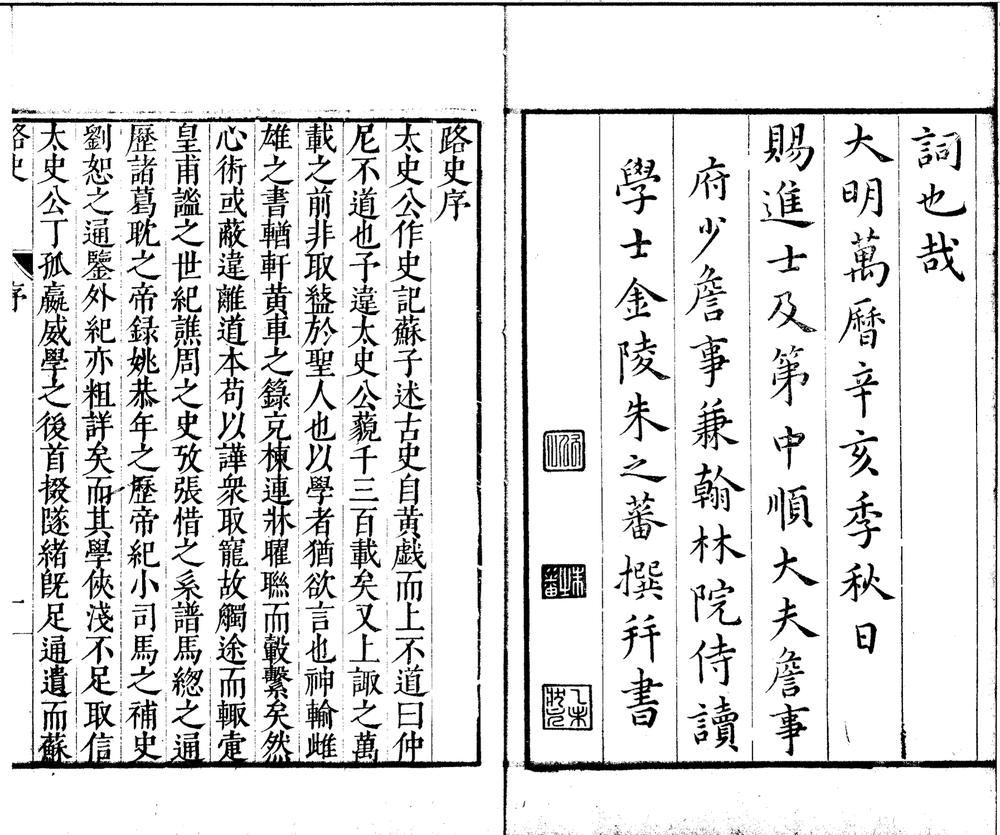 詞也哉
大明萬曆辛亥季秋日
賜進士及第中順大夫詹事
府少詹事兼翰林院侍讀
學士金陵朱之蕃撰并書
路史序
太史公作史記蘇子述古史自黄戯而上不道曰仲
尼不道也予違太史公藐千三百載矣又上諏之萬
載之前非取盭於聖人也以學者猶欲言也神輸雌
雄之書輶軒黄車之錄充棟連牀曜聮而轂繫矣然
心術或蔽違離道本苟以譁衆取寵故觸途而輙窒
皇甫謐之世紀譙周之史攷張愔之系譜馬緫之通
歷諸葛耽之帝録姚恭年之歷帝紀小司馬之補史
劉恕之通鑒外紀亦粗詳矣而其學俠淺不足取信
太史公丁孤嬴威學之後首掇隧緒旣足通遺而蘇
路史
序
一